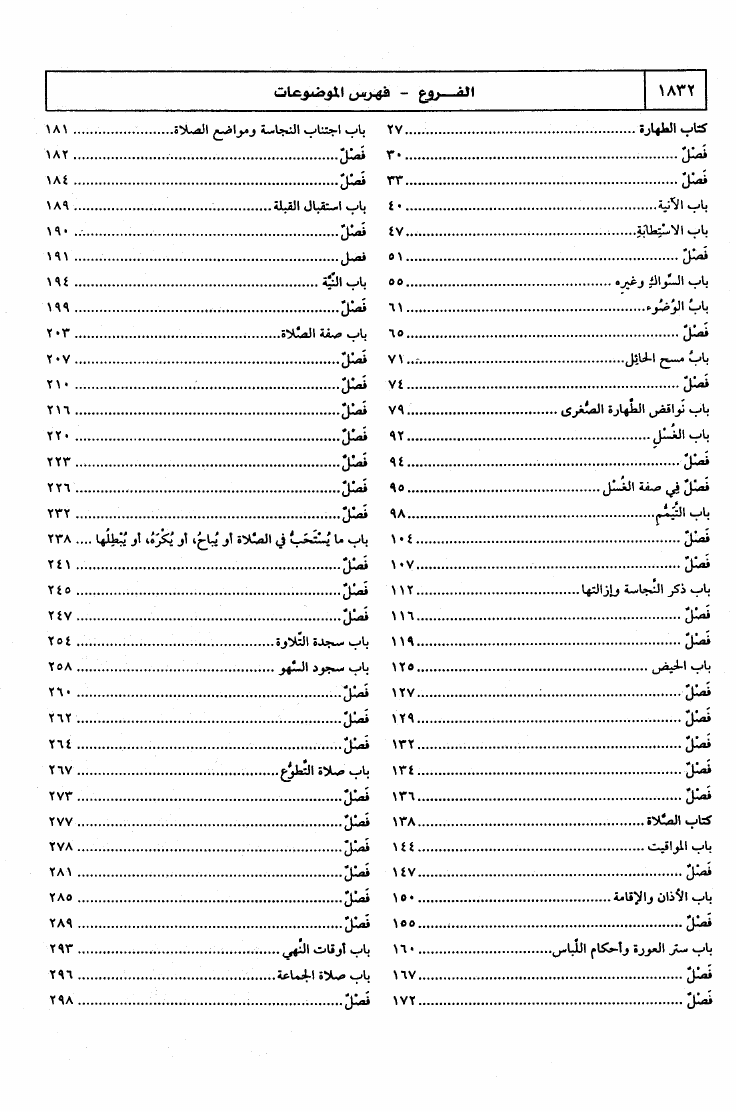 ١٨٣٢
الفـــروع - فهرس الموضوعات
كتاب الطهارة ........ ٢٧
فَصْلٌ ........ ٣٠
فَصْلٌ ........ ٣٣
باب الآنية ........ ٤٠
باب الاسْتِطابَةِ ........ ٤٧
فَصْلٌ ........ ٥١
باب السِّواكِ وغيرِه ........ ٥٥
بابُ الوُضُوء ........ ٦١
فَصْلٌ ........ ٦٥
بابُ مسح الحائِل ........ ٧١
فَصْلٌ ........ ٧٤
باب نَواقض الطَّهارة الصُّغرى ........ ٧٩
باب الغُسْلِ ........ ٩٢
فَصْلٌ ........ ٩٤
فَصْلٌ فِي صفة الغُسْل ........ ٩٥
باب التَّيَمُّم ........ ٩٨
فَصْلٌ ........ ١٠٤
فَصْلٌ ........ ١٠٧
باب ذكر النَّجاسة وإزالتها ........ ١١٢
فَصْلٌ ........ ١١٦
فَصْلٌ ........ ١١٩
باب الحَيض ........ ١٢٥
فَصْلٌ ........ ١٢٧
فَصْلٌ ........ ١٢٩
فَصْلٌ ........ ١٣٢
فَصْلٌ ........ ١٣٤
فَصْلٌ ........ ١٣٦
كتاب الصَّلاة ........ ١٣٨
باب المواقيت ........ ١٤٤
فَصْلٌ ........ ١٤٧
باب الأذان والإقامة ........ ١٥٠
فَصْلٌ ........ ١٥٥
باب ستر العورة وأحكام اللِّباس ........ ١٦٠
فَصْلٌ ........ ١٦٧
فَصْلٌ ........ ١٧٢
باب اجتناب النجاسة ومواضع الصلاة ........ ١٨١
فَصْلٌ ........ ١٨٢
فَصْلٌ ........ ١٨٤
باب استقبال القبلة ........ ١٨٩
فَصْلٌ ........ ١٩٠
فصل ........ ١٩١
باب النِّيَّة ........ ١٩٤
فَصْلٌ ........ ١٩٩
باب صفة الصَّلاة ........ ٢٠٣
فَصْلٌ ........ ٢٠٧
فَصْلٌ ........ ٢١٠
فَصْلٌ ........ ٢١٦
فَصْلٌ ........ ٢٢٠
فَصْلٌ ........ ٢٢٣
فَصْلٌ ........ ٢٢٦
فَصْلٌ ........ ٢٣٢
باب ما يُسْتَحَبُّ في الصَّلاة أو يُباحُ، أو يُكْرَهُ، أو يُبْطِلُها .... ٢٣٨
فَصْلٌ ........ ٢٤١
فَصْلٌ ........ ٢٤٥
فَصْلٌ ........ ٢٤٧
باب سجدة التِّلاوة ........ ٢٥٤
باب سجود السَّهو ........ ٢٥٨
فَصْلٌ ........ ٢٦٠
فَصْلٌ ........ ٢٦٢
فَصْلٌ ........ ٢٦٤
باب صلاة التَّطوُّع ........ ٢٦٧
فَصْلٌ ........ ٢٧٣
فَصْلٌ ........ ٢٧٧
فَصْلٌ ........ ٢٧٨
فَصْلٌ ........ ٢٨١
فَصْلٌ ........ ٢٨٥
فَصْلٌ ........ ٢٨٩
باب أوقات النَّهي ........ ٢٩٣
باب صلاة الجماعة ........ ٢٩٦
فَصْلٌ ........ ٢٩٨